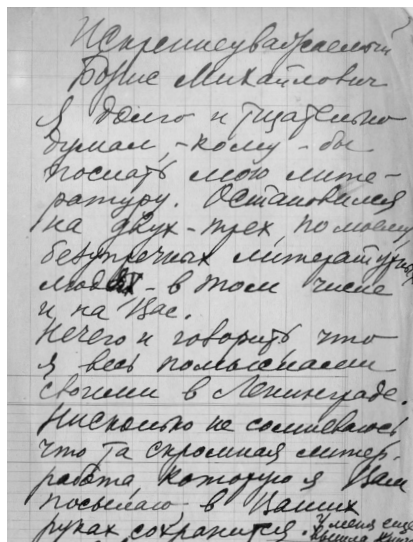 Искреннеуважаемый
Борис Михайлович
Я долго и тщательно
думал, - кому - бы
послать мою лите-
ратуру. Остановился
на двух-трех, по моему,
безупречных литературных
людях - в том числе
и на Вас.
Нечего и говорить что
я весь помыслами
своими в Ленинграде.
Нисколько не сомневаюсь,
что та скромная литер.
работа которую я Вам
посылаю, в Ваших
руках сохранится. У меня еще
вышла